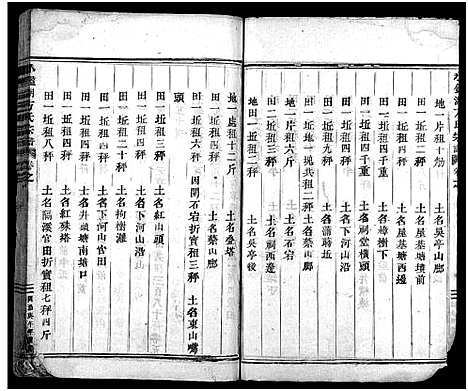 地一片租十觔 土名吳亭山廊
田一坵租二秤 土名屋基塘墳前
田一坵租二秤 土名屋基塘西邊
田一坵租四千重 土名樟樹下
田一坵租四千重 土名祠堂塘頭
田一坵租二秤 土名蒲蒴坵
地一坵一塊共租二秤 土名葉山廊
地一坵租二秤 土名石宕
田一坵租二秤 土名祠西邊
地田一坵租二秤 土名吳亭後
地一處租十二斤 土名疊塔
田一坵租三秤 土名葉山廊
田一坵租六秤 因開石宕折實租三秤 土名東山嘴
頭
田一坵租十秤 土名下河山沿
田一坵租二十秤 土名枸樹灘
田一坵租六秤 土名下河山宕田
田一坵租四秤 土名井頭塘南塘口
田一坵租三秤 土名紅殊塔
田一坵租八秤 土名隔溪官田折實租七秤四斤
方氏宗譜